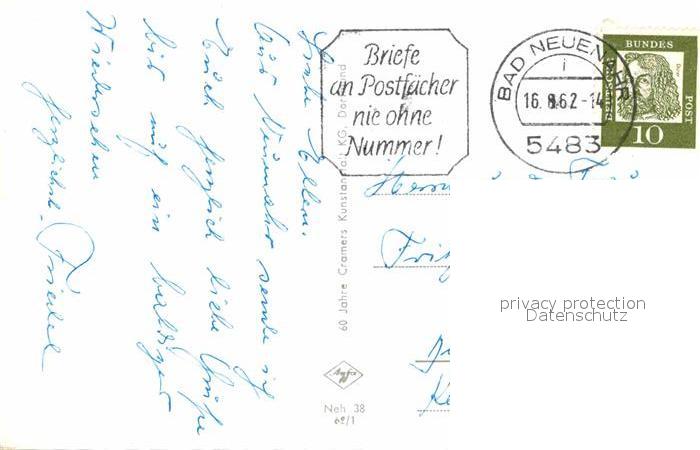 Liebe Eltern.
Aus Neuenahr sende ich
Euch herzlich liebe Grüße
bis auf ein baldiges
Wiedersehen
herzlichst. Friedel
Briefe
an Postfächer
nie ohne
Nummer!
BAD NEUENAHR
i
16.8.62-14
5483
BUNDES
POST
10
60 Jahre Cramers Kunstanstalt KG, Dortmund
Agfa
Neh 38
62/1
Herrn u
Fritz
privacy protection
Datenschutz